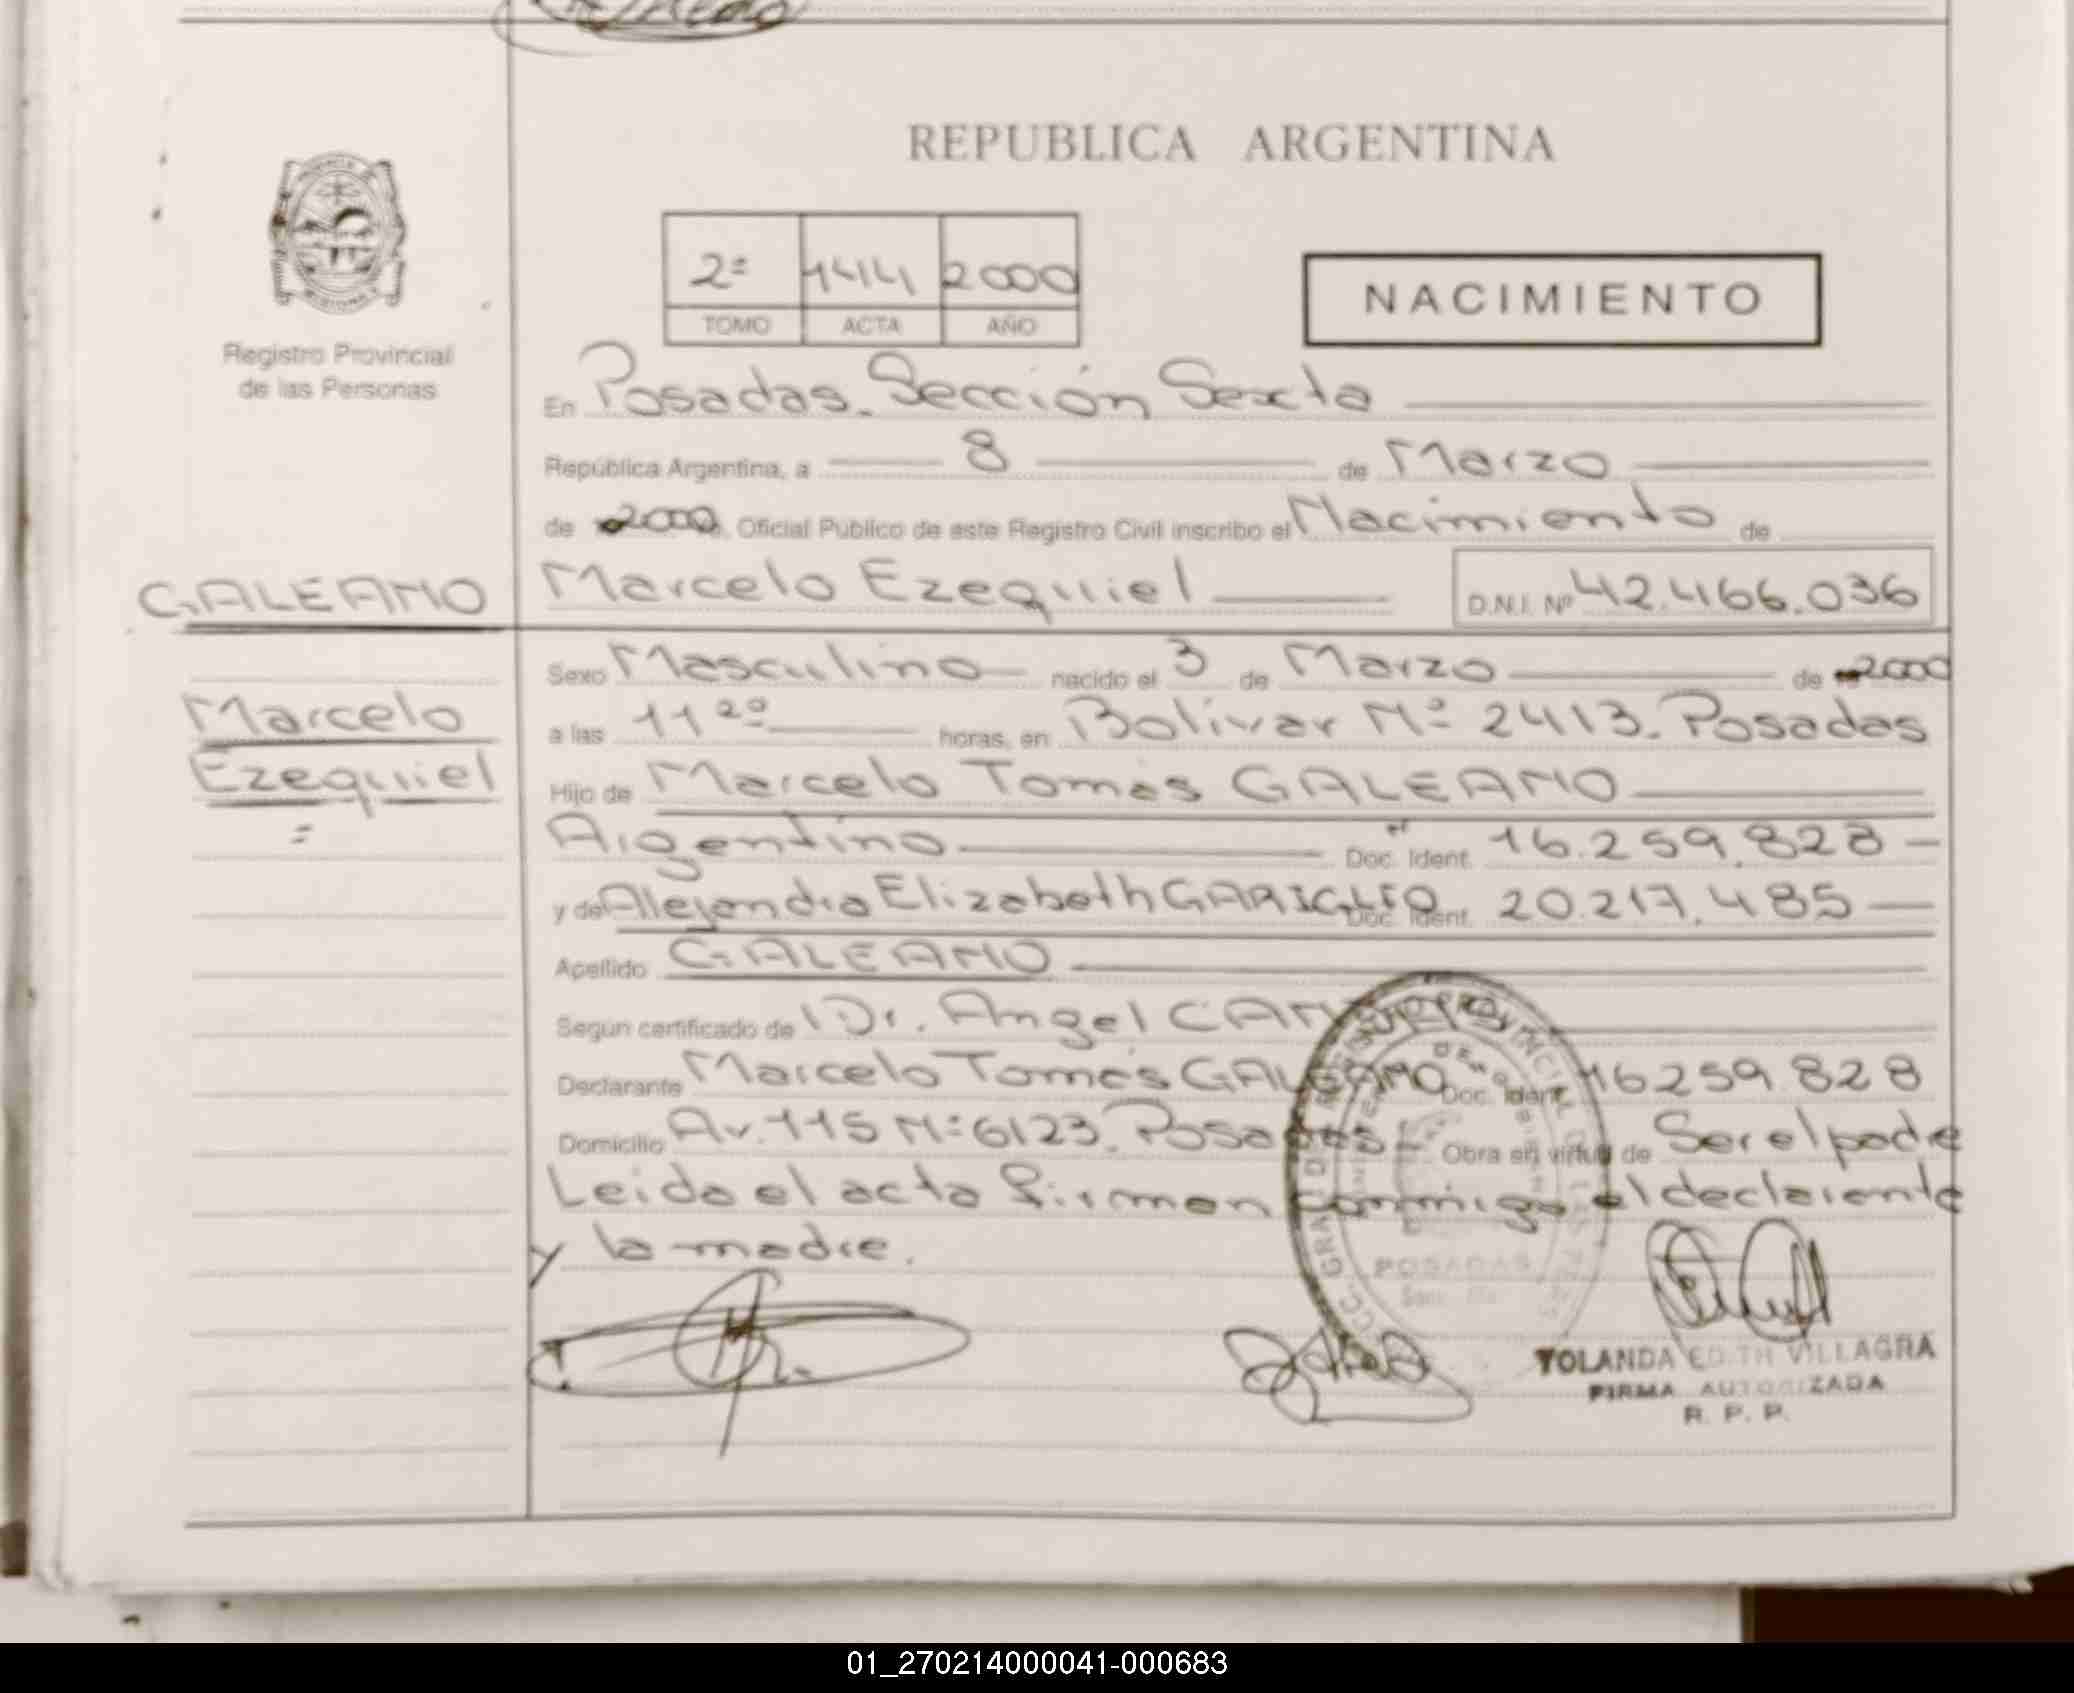 REPUBLICA ARGENTINA
2º 1414 2000
TOMO ACTA AÑO
NACIMIENTO
Registro Provincial
de las Personas
En Posadas. Sección Sexta
República Argentina, a 8 de Marzo
de 2000, Oficial Público de este Registro Civil inscribo el Nacimiento de
GALEANO
Marcelo Ezequiel D.N.I. Nº 42.466.036
Marcelo
Ezequiel
Sexo Masculino nacido el 3 de Marzo de 2000
a las 11 20 horas, en Bolívar Nº 2413. Posadas
Hijo de Marcelo Tomás GALEANO
Argentino Doc. Ident. 16.259.828
y de Alejandra Elizabeth GARIGLIO Doc. Ident. 20.217.485
Apellido GALEANO
Según certificado de Dr. Angel
Declarante Marcelo Tomás GALEANO Doc. Ident. 16259.828
Domicilio Av. 115 Nº 6123. Posadas Obra en virtud de Ser el padre
Leida el acta firman conmigo el declarante
y la madre.
POSADAS
YOLANDA EDITH VILLAGRA
FIRMA AUTORIZADA
R. P. P.
01_270214000041-000683